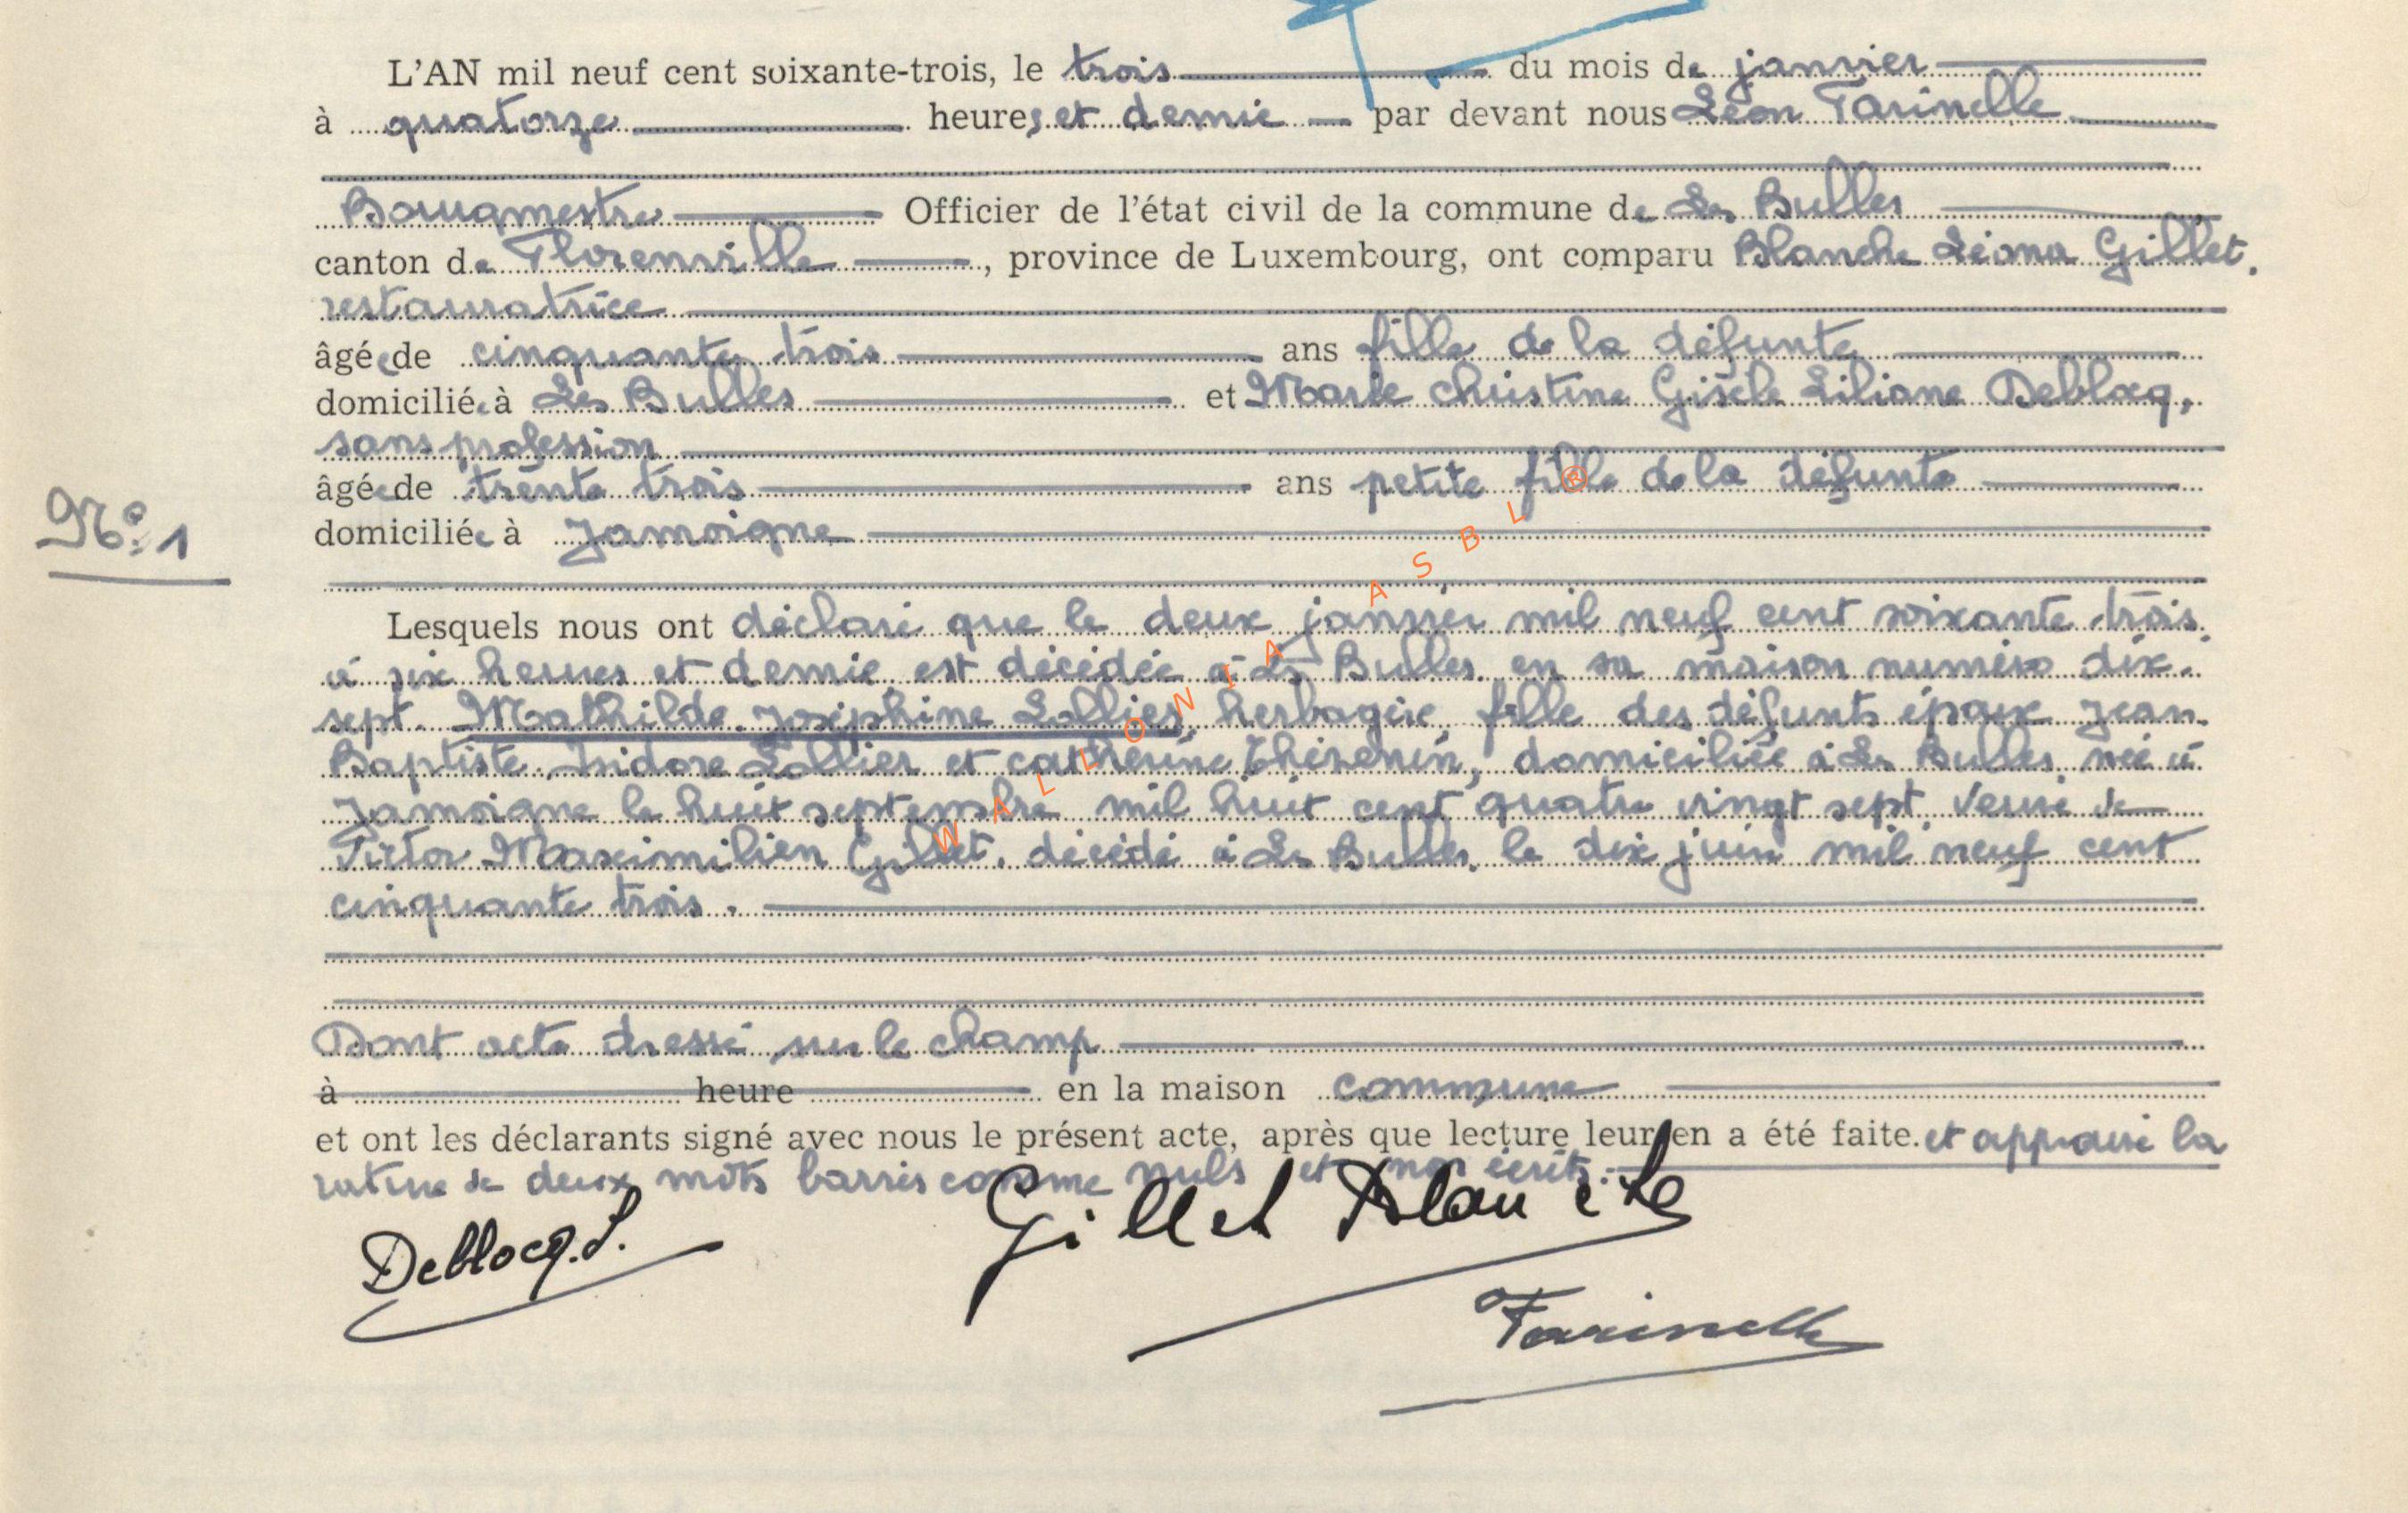 L'AN mil neuf cent soixante-trois, le trois du mois de janvier
à quatorze heures et demie par devant nous Léon Farinelle
Bourgmestre Officier de l'état civil de la commune de Les Bulles
canton de Florenville, province de Luxembourg, ont comparu Blanche Léona Gillet,
restauratrice
âgée de cinquante trois ans fille de la défunte
domiciliée à Les Bulles et Marie Christine Gisèle Liliane Deblocq,
sans profession
âgée de trente trois ans petite fille de la défunte
N° 1
domiciliée à Jamoigne
Lesquels nous ont déclaré que le deux janvier mil neuf cent soixante trois
à six heures et demie est décédée à Les Bulles en sa maison numéro dix-
sept. Mathilde Joséphine Lallier, herbagère, fille des défunts époux Jean
Baptiste Isidore Lallier et Catherine Thévenin, domiciliée à Les Bulles, née à
Jamoigne le huit septembre mil huit cent quatre vingt sept. Veuve de
Victor Maximilien Gillet, décédé à Les Bulles, le dix juin mil neuf cent
cinquante trois.
Dont acte dressé sur le champ
à heure en la maison commune
et ont les déclarants signé avec nous le présent acte, après que lecture leur en a été faite. et approuvé la
rature de deux mots barrés comme nuls et non écrits.
Deblocq. L.
Gillet Blanche
Farinelle
WALLONIA ASBL ®